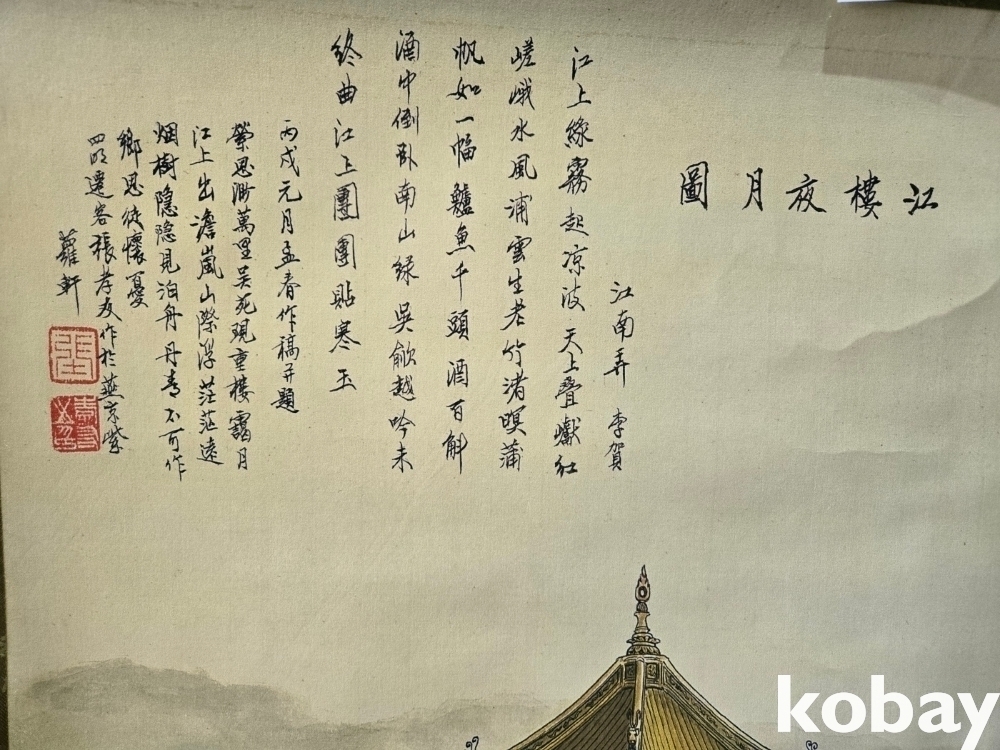 江樓夜月圖
江南弄 李賀
江上綠霧起凉波天上疊巘紅
嵯峨水風浦雲生老竹渚暝蒲
帆如一幅鱸魚千頭酒百斛
酒中倒卧南山綠吳歈越吟未
終曲江上團團貼寒玉
丙戌元月孟春作稿并題
縈思渺萬里吴苑現重樓靄月
江上出澹嵐山際浮茫茫遠
烟樹隐隐見泊舟丹青不可作
鄉思徒懷憂
四明遷客張孝友作於燕京紫
蘿軒
kobay